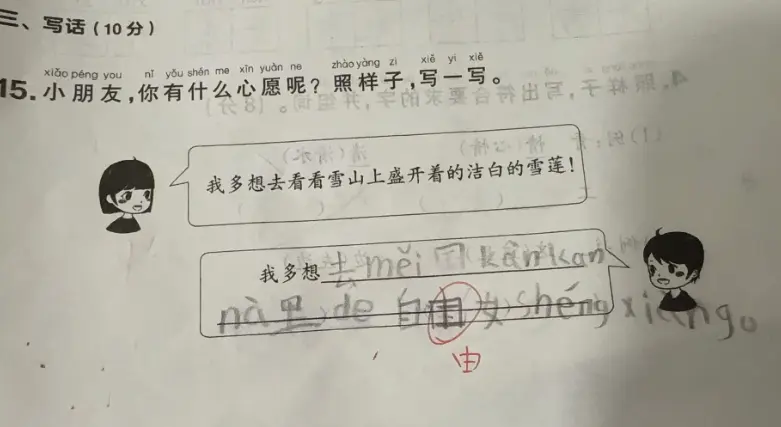 三、写话（10分）
xiǎo péng you nǐ yǒu shén me xīn yuàn ne zhào yàng zi xiě yi xiě
15.小朋友,你有什么心愿呢？照样子,写一写。
我多想去看看雪山上盛开着的洁白的雪莲！
我多想去měi国kànkan
nà里de自由女shéngxiàng。
由